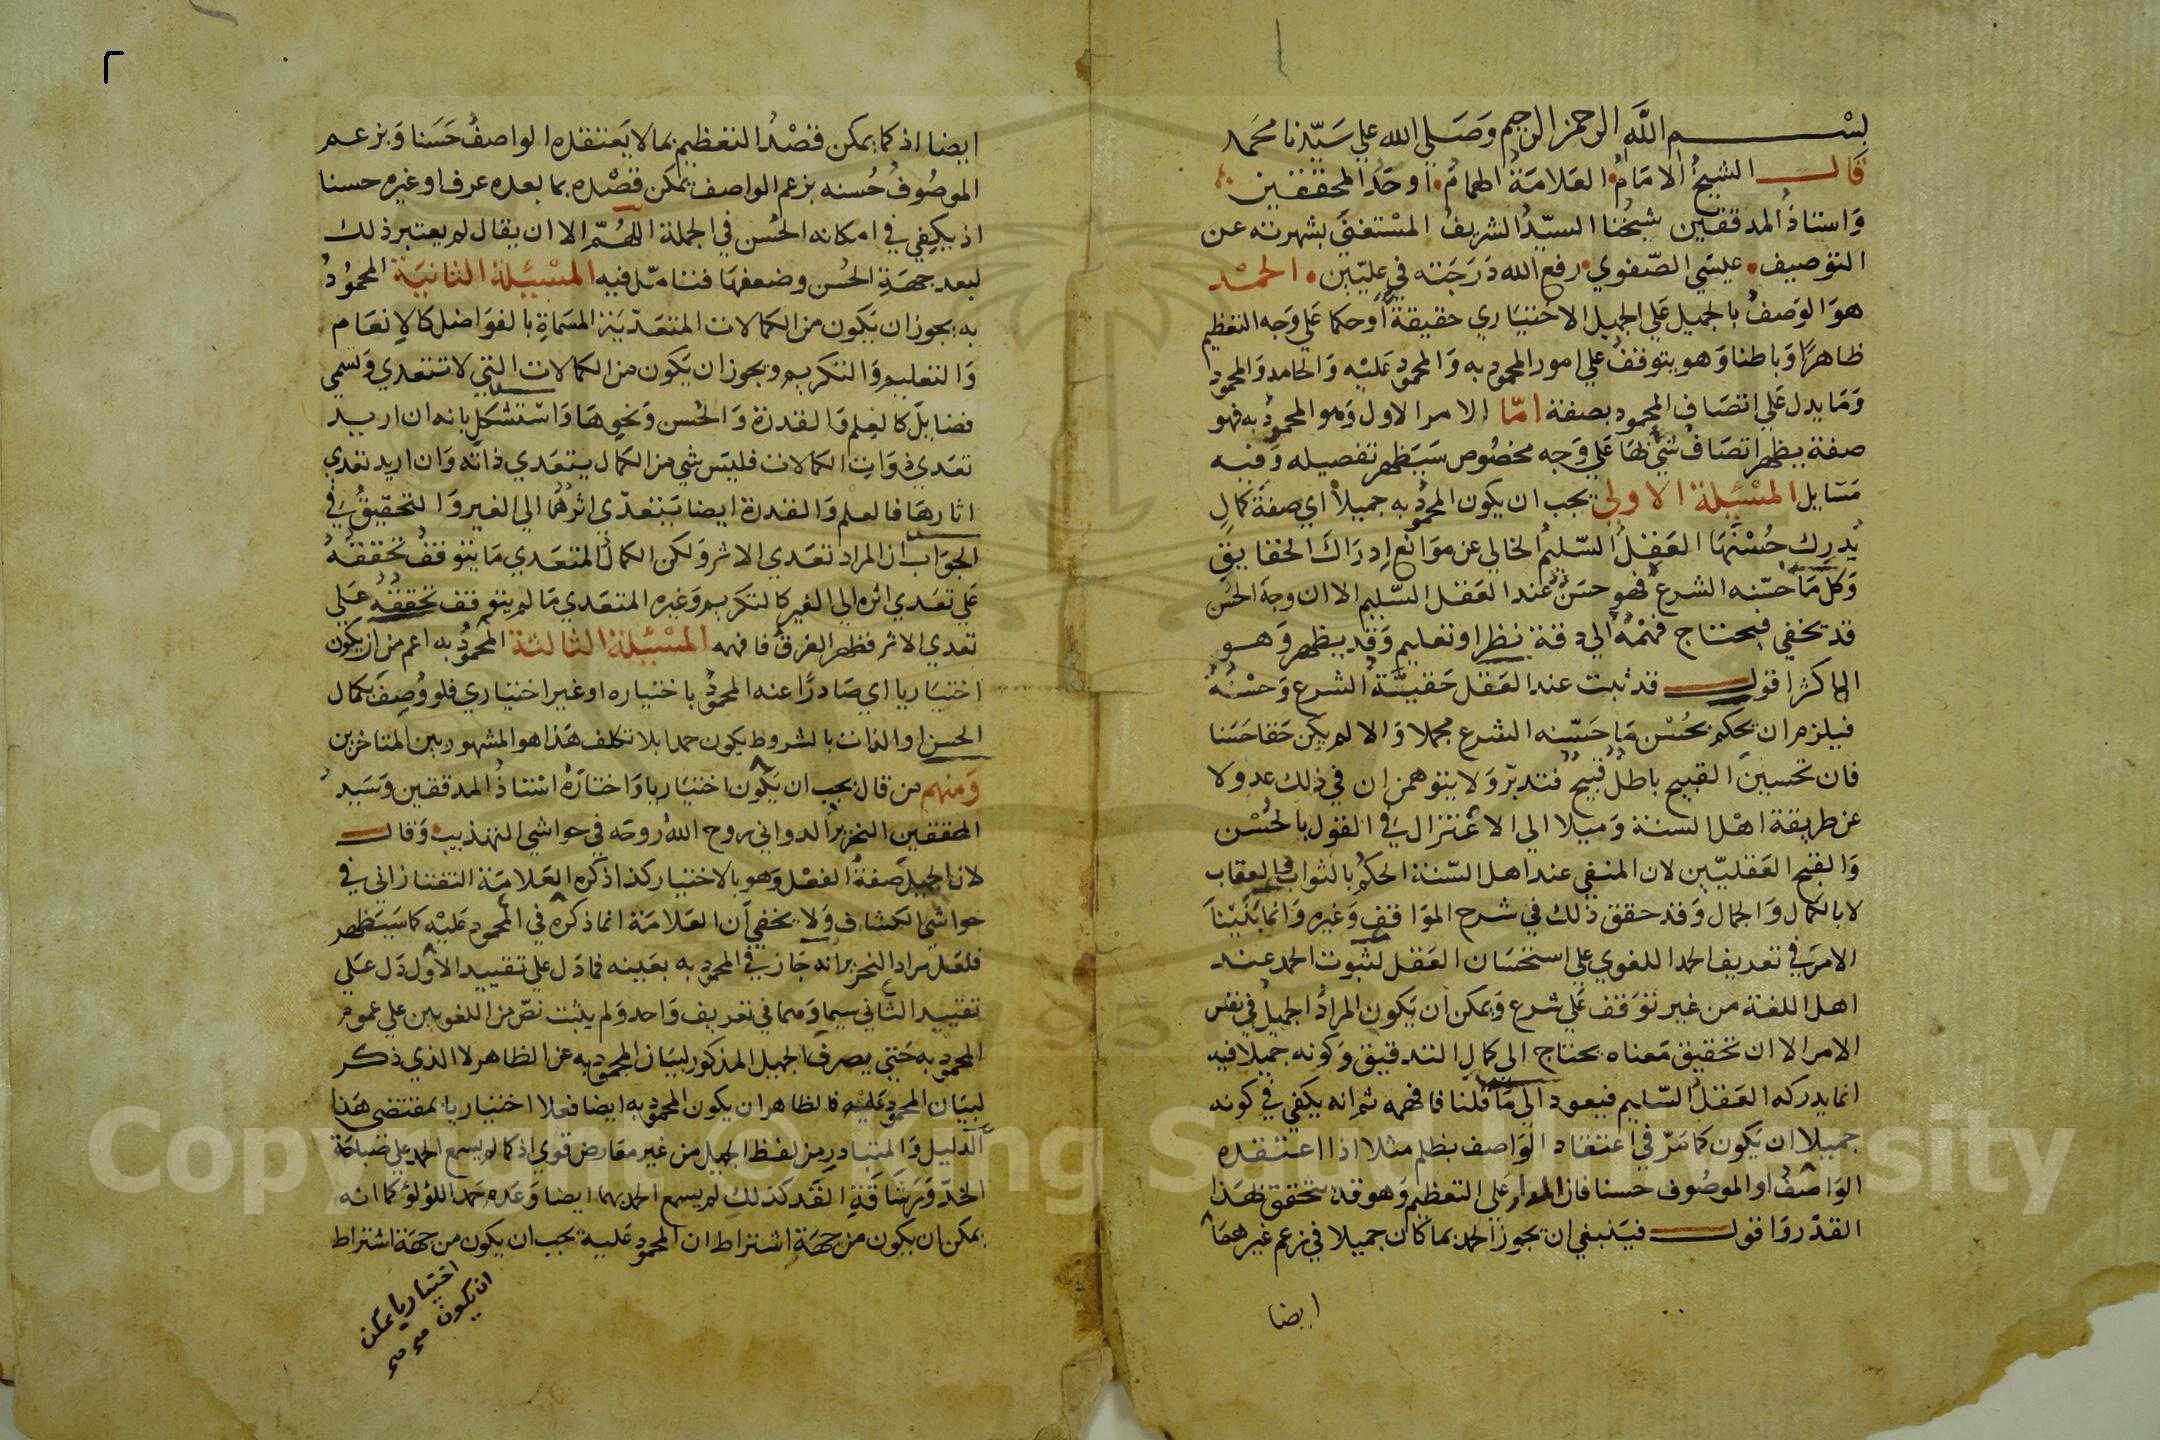 بسم الله الرحمن الرحيم وصلى الله علي سيدنا محمد
قال الشيخ الامام العلامة الهمام اوحد المحققين
واستاذ المدققين شيخنا السيد الشريف المستغني بشهرته عن
التوصيف عيسي الصفوي رفع الله درجته في عليين الحمد
هو الوصف بالجميل علي الجميل الاختياري حقيقة أو حكما علي وجه التعظيم
ظاهرا وباطنا وهو يتوقف علي امور المحمود به والمحمود عليه والحامد والمحمود
وما يدل علي اتصاف المحمود بصفة اما الامر الاول وهو المحمود به فهو
صفة يظهر اتصاف شي بها علي وجه مخصوص سيظهر تفصيله وفيه
مسايل المسئلة الاولي يجب ان يكون المحمود به جميلا اي صفة كمال
يدرك حسنها العقل السليم الخالي عن موانع ادراك الحقايق
وكل ما حسنه الشرع فهو حسن عند العقل السليم الا ان وجه الحسن
قد تخفي فيحتاج فهمه الي دقة نظر او تعليم وقد يظهر وهو
الاكثر اقول قد ثبت عند العقل حقية الشرع وحسنه
فيلزم ان تحكم بحسن ما حسنه الشرع مجملا والا لم يكن حقا حسنا
فان تحسين القبيح باطل قبيح فتدبر ولا يتوهمن ان في ذلك عدولا
عن طريقة اهل السنة وميلا الي الاعتزال في القول بالحسن
والقبح العقليين لان المنفي عند اهل السنة الحكم بالثواب والعقاب
لا بالكمال والجمال وقد حقق ذلك في شرح المواقف وغيره وانما بنينا
الامر في تعريف الحمد اللغوي علي استحسان العقل لثبوت الحمد عند
اهل اللغة من غير توقف علي شرع ويمكن ان يكون المراد الجميل في نفس
الامر الا ان تحقيق معناه يحتاج الي كمال التدقيق وكونه جميلا فيه
انما يدركه العقل السليم فيعود الي ما قلنا فافهمه ثم انه يكفي في كونه
جميلا ان يكون كما مر في اعتقاد الواصف بظلم مثلا اذا اعتقده
الواصف او الموصوف حسنا فان المدار علي التعظيم وهو قد يتحقق بهذا
القدر واقول فينبغي ان يجوز الحمد بما كان جميلا في زعم غيرهما
ايضا
ايضا اذ كما يمكن قصد التعظيم بما لا يعتقده الواصف حسنا وبزعم
الموصوف حسنه بزعم الواصف يمكن قصده بما بعده عرف او غيره حسنا
اذ يكفي في امكانه الحسن في الجملة اللهم الا ان يقال لم يعتبر ذلك
لبعد جهة الحسن وضعفها فتامل فيه المسئلة الثانية المحمود
به يجوز ان يكون من الكمالات المتعدية المسماة بالفواضل كالإنعام
والتعليم والتكريم ويجوز ان يكون من الكمالات التي لا تتعدي وتسمي
فضايل كالعلم والقدرة والحسن ونحوها واستشكل بانه ان اريد
تعدي ذوات الكمالات فليس شي من الكمال يتعدي ذاته وان اريد تعدي
اثارها فالعلم والقدرة ايضا يتعدي اثرهما الي الغير والتحقيق في
الجواب ان المراد تعدي الاثر ولكن الكمال المتعدي ما يتوقف تحققه
علي تعدي اثره الي الغير كالتكريم وغيره المتعدي ما لم يتوقف تحققه علي
تعدي الاثر فظهر الفرق فافهمه المسئلة الثالثة المحمود به اعم من ان يكون
اختياريا اي صادرا عنه المحمود باختياره او غير اختياري فلو وصف بكمال
الحسن او الذات بالشروط يكون حمدا بلا تكلف هذا هو المشهور بين المتاخرين
ومنهم من قال يجب ان يكون اختياريا واختاره استاذ المدققين وسيد
المحققين النحرير الدواني روح الله روحه في حواشي التهذيب وقال
لان الجميل صفة الفعل وهو بالاختيار كذا ذكره العلامة التفتازاني في
حواشي الكشاف ولا يخفي أن العلامة انما ذكره في المحمود عليه كما سيظهر
فلعل مراد النحرير انه جاز في المحمود به بعينه فما دل علي تقييد الأول دل علي
تقييد الثاني سيما وهما في تعريف واحد ولم يثبت نص من اللغويين علي عموم
المحمود به حتي يصرف الجميل المذكور لبيان المحمود به عن الظاهر لا الذي ذكر
لبيان المحمود عليه فالظاهر ان يكون المحمود به ايضا فعلا اختياريا بمقتضي هذا
الدليل والمتبادر من لفظ الجميل من غير معارض قوي اذ كما لم يسمع الحمد علي صباحة
الخد ورشاقة القد كذلك لم يسمع الحمد بهما ايضا وعده حمد اللؤلؤ كما انه
يمكن ان يكون من جهة اشتراط ان المحمود عليه يجب ان يكون من جهة اشتراط
اختياريا يمكن
ان يكون
Copyright © King Saud University